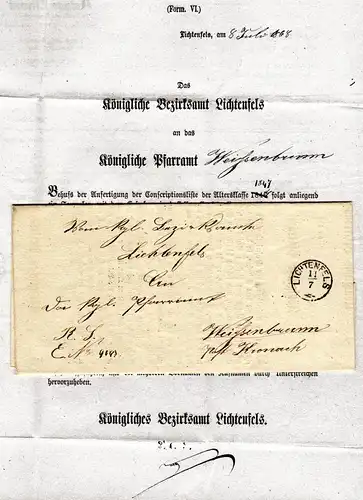 (Form. VI.)
Lichtenfels, am 8 Juli 1868
Das
Königliche Bezirksamt Lichtenfels
an das
Königliche Pfarramt Weissenbrunn
1847
Behufs der Anfertigung der Conscriptionsliste der Altersklasse folgt anliegend
Vom Kgl. Bezirksamt
Lichtenfels
An
das Kgl. Pfarramt
R. S.
E. No
Weissenbrunn
Kronach
LICHTENFELS
11
7
durch Unterstreichen
hervorzuheben.
Königliches Bezirksamt Lichtenfels.